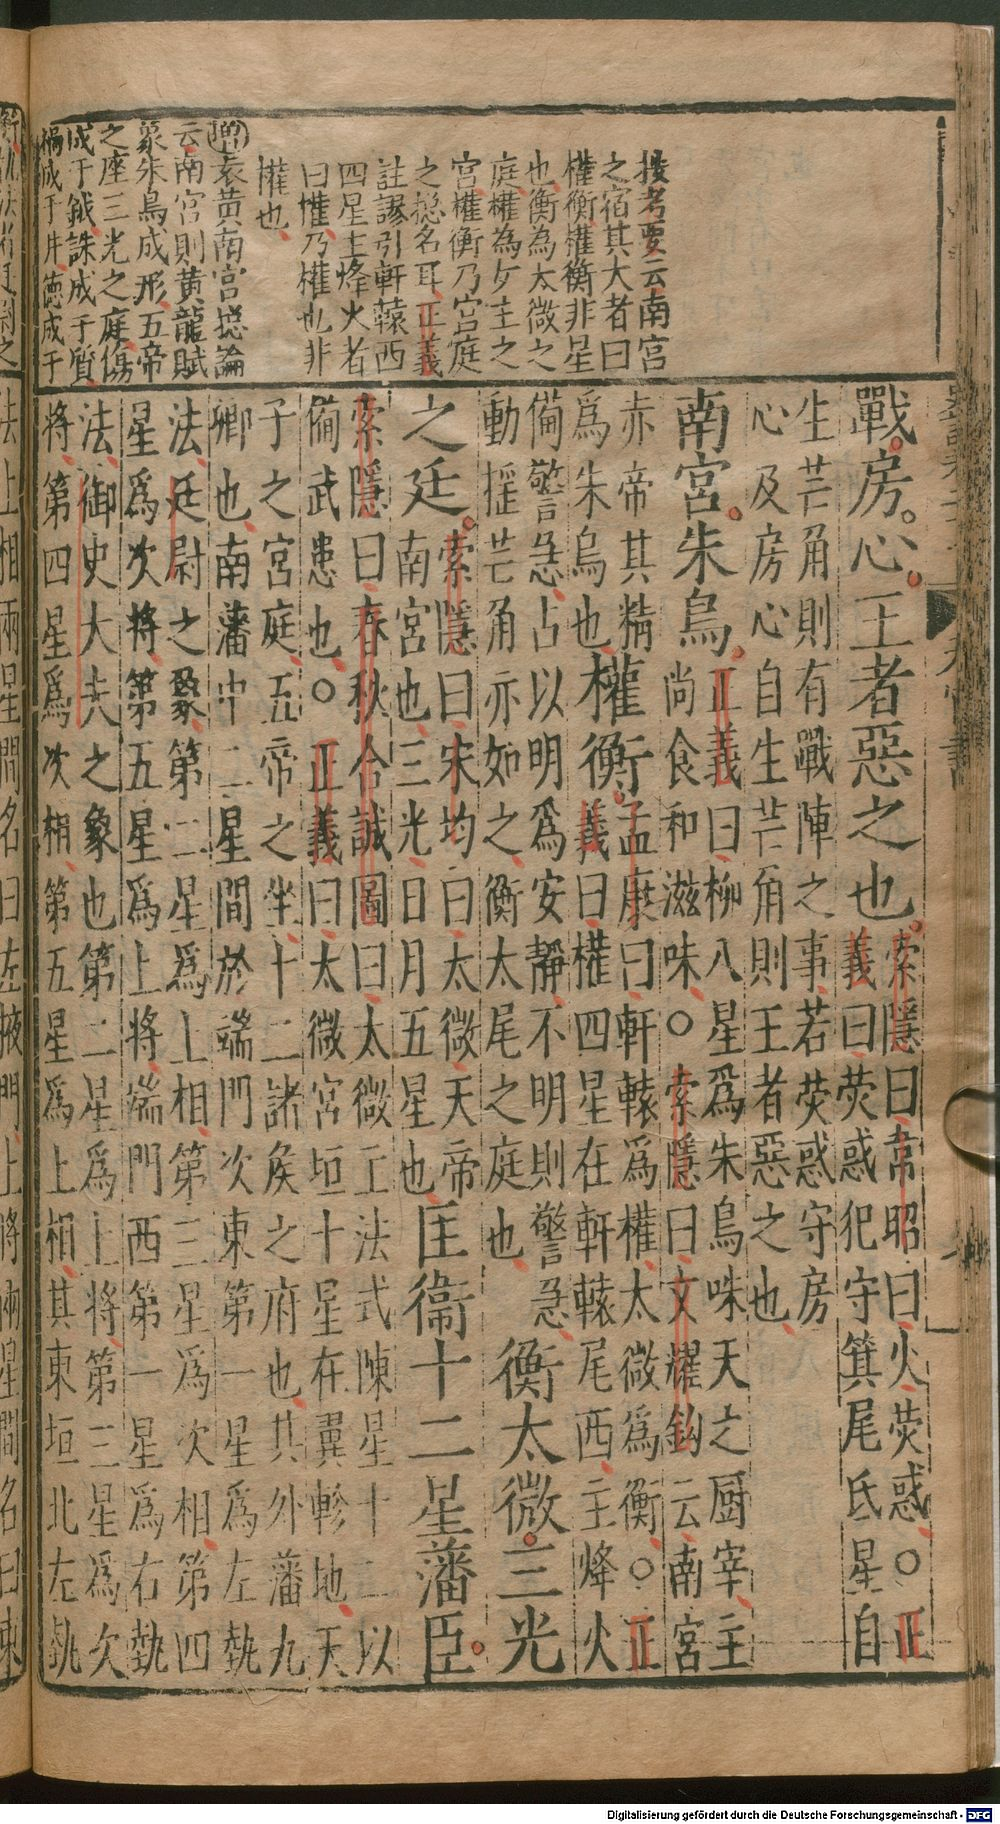 按考要云南宮
之宿其大者曰
權衡權衡非星
也衡為太微之
庭權為女主之
宮權衡乃宮庭
之揔名耳正義
註謬引軒轅西
四星主烽火者
曰爟乃權也非
權也
增袁黃南宮揔論
云南宮則黃龍賦
象朱鳥成形五帝
之座三光之庭傷
成于鉞誅成于質
禍成于井德成于
戰房心王者惡之也
索隱曰韋昭曰火熒惑○正
義曰熒惑犯守箕尾氐星自
生芒角則有戰陣之事若熒惑守房
心及房心自生芒角則王者惡之也
南宮朱鳥
正義曰柳八星爲朱鳥咮天之厨宰主
尚食和滋味○索隱曰文耀鉤云南宮
赤帝其精
爲朱鳥也
權衡
孟康曰軒轅爲權太微爲衡○正
義曰權四星在軒轅尾西主烽火
備警急占以明爲安靜不明則警急
動揺芒角亦如之衡太尾之庭也
衡太微三光
之廷
索隱曰宋均曰太微天帝
南宮也三光日月五星也
匡衛十二星藩臣
索隱曰春秋合誠圖曰太微主法式陳星十二以
備武患也○正義曰太微宮垣十星在翼軫地天
子之宮庭五帝之坐十二諸侯之府也其外藩九
卿也南藩中二星間於端門次東第一星爲左執
法廷尉之象第二星爲上相第三星爲次相第四
星爲次將第五星爲上將端門西第一星爲右執
法御史大夫之象也第二星爲上將第三星爲次
將第四星爲次相第五星爲上相其東垣北左執
法上相兩星間名曰左掖門上將兩星間名曰東
Digitalisierung gefördert durch die Deutsche Forschungsgemeinschaft - DFG